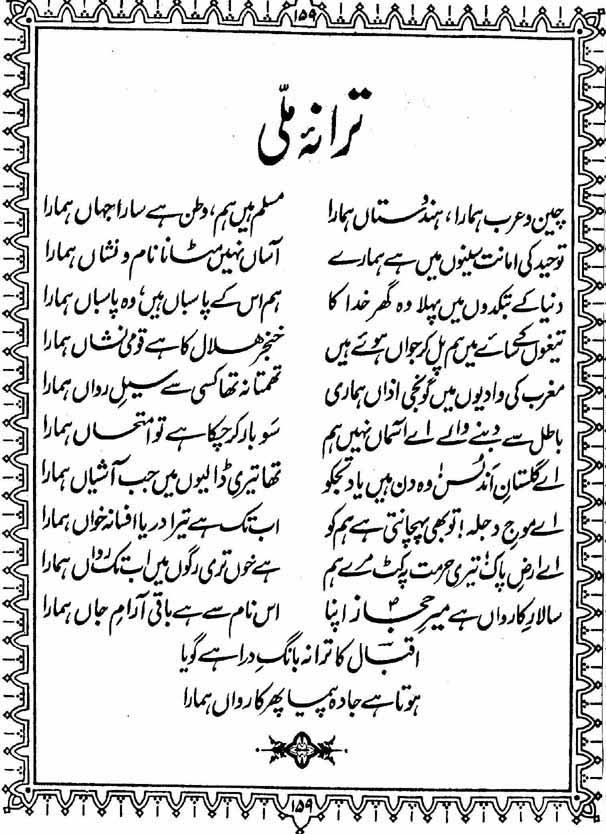 ۱۵۹
ترانۂ ملّی
چین و عرب ہمارا، ہندوستاں ہمارا مسلم ہیں ہم، وطن ہے سارا جہاں ہمارا
توحید کی امانت سینوں میں ہے ہمارے آساں نہیں مٹانا نام و نشاں ہمارا
دنیا کے بتکدوں میں پہلا وہ گھر خدا کا ہم اس کے پاسباں ہیں، وہ پاسباں ہمارا
تیغوں کے سائے میں ہم پل کر جواں ہوئے ہیں خنجر ہلال کا ہے قومی نشاں ہمارا
مغرب کی وادیوں میں گونجی اذاں ہماری تھمتا نہ تھا کسی سے سیلِ رواں ہمارا
باطل سے دبنے والے اے آسماں نہیں ہم سو بار کر چکا ہے تو امتحاں ہمارا
اے گلستانِ اندلس! وہ دن ہیں یاد تجکو تھا تیری ڈالیوں میں جب آشیاں ہمارا
اے موجِ دجلہ! تو بھی پہچانتی ہے ہم کو اب تک ہے تیرا دریا افسانہ خواں ہمارا
اے ارضِ پاک! تیری حرمت پہ کٹ مرے ہم ہے خوں تری رگوں میں اب تک رواں ہمارا
سالارِ کارواں ہے میرِ حجازؐ اپنا اس نام سے ہے باقی آرامِ جاں ہمارا
اقبال کا ترانہ بانگِ درا ہے گویا
ہوتا ہے جادہ پیما پھر کارواں ہمارا
۱۵۹